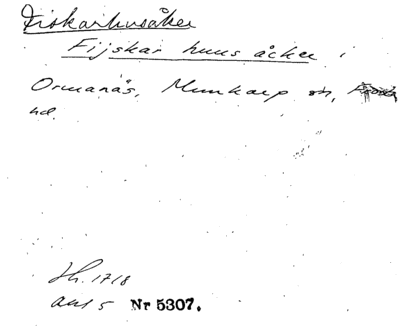 Fiskarhusåker
Fijskar huus åcker i
Ormanäs, Munkarp sn,
hd.
Jh. 1718
akt 5 Nr 5307.